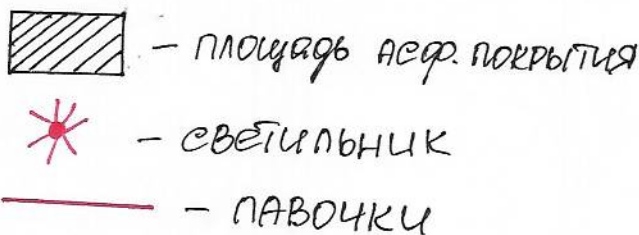 - площадь асф. покрытия
- светильник
- лавочки